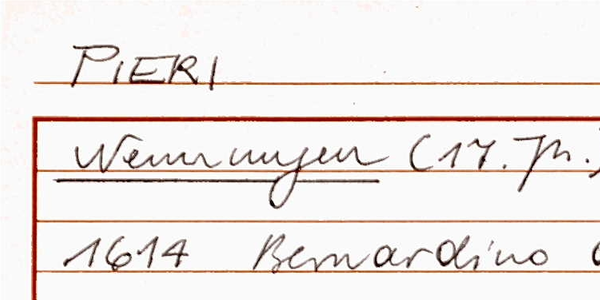 PIERI
Nennungen (17. Jh.)
1614 Bernardino